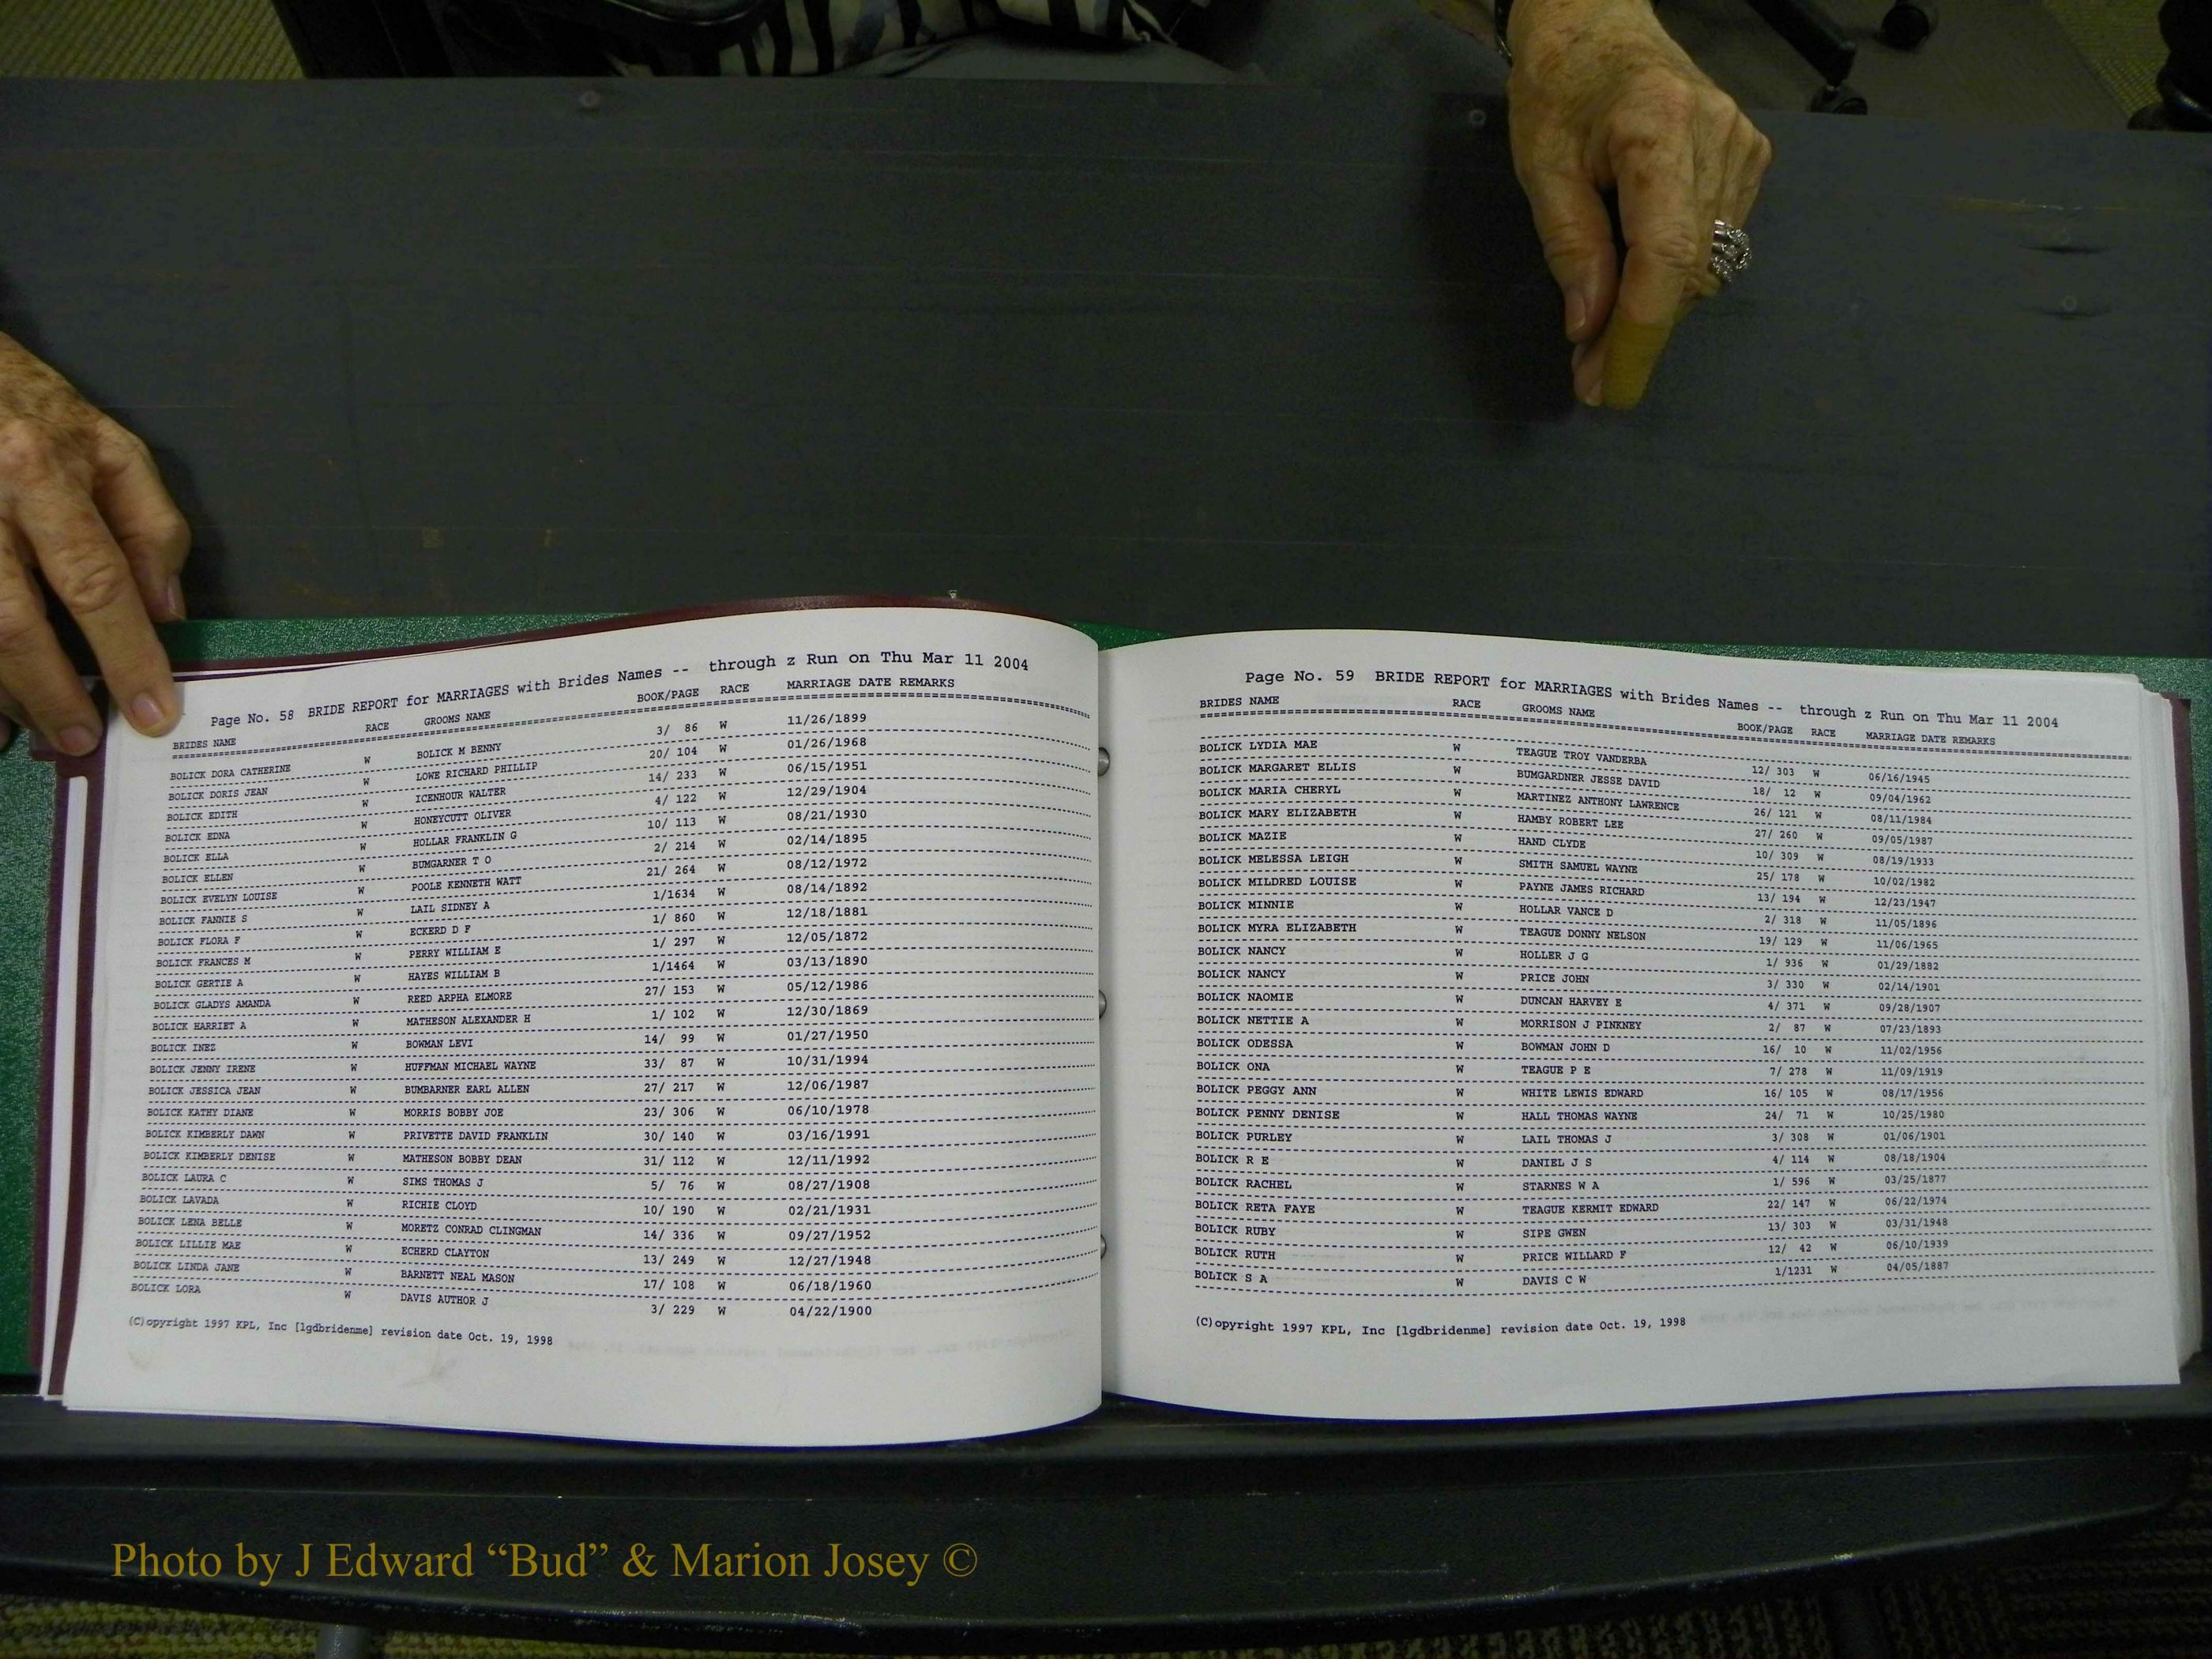 Page No. 58 BRIDE REPORT for MARRIAGES with Brides Names -- through z Run on Thu Mar 11 2004
BRIDES NAME RACE GROOMS NAME BOOK/PAGE RACE MARRIAGE DATE REMARKS
BOLICK DORA CATHERINE W BOLICK M BENNY 3/ 86 W 11/26/1899
BOLICK DORIS JEAN W LOWE RICHARD PHILLIP 20/ 104 W 01/26/1968
BOLICK EDITH W ICENHOUR WALTER 14/ 233 W 06/15/1951
BOLICK EDNA W HONEYCUTT OLIVER 4/ 122 W 12/29/1904
BOLICK ELLA W HOLLAR FRANKLIN G 10/ 113 W 08/21/1930
BOLICK ELLEN W BUMGARNER T O 2/ 214 W 02/14/1895
BOLICK EVELYN LOUISE W POOLE KENNETH WATT 21/ 264 W 08/12/1972
BOLICK FANNIE S W LAIL SIDNEY A 1/1634 W 08/14/1892
BOLICK FLORA F W ECKERD D F 1/ 860 W 12/18/1881
BOLICK FRANCES M W PERRY WILLIAM E 1/ 297 W 12/05/1872
BOLICK GERTIE A W HAYES WILLIAM B 1/1464 W 03/13/1890
BOLICK GLADYS AMANDA W REED ARPHA ELMORE 27/ 153 W 05/12/1986
BOLICK HARRIET A W MATHESON ALEXANDER H 1/ 102 W 12/30/1869
BOLICK INEZ W BOWMAN LEVI 14/ 99 W 01/27/1950
BOLICK JENNY IRENE W HUFFMAN MICHAEL WAYNE 33/ 87 W 10/31/1994
BOLICK JESSICA JEAN W BUMBARNER EARL ALLEN 27/ 217 W 12/06/1987
BOLICK KATHY DIANE W MORRIS BOBBY JOE 23/ 306 W 06/10/1978
BOLICK KIMBERLY DAWN W PRIVETTE DAVID FRANKLIN 30/ 140 W 03/16/1991
BOLICK KIMBERLY DENISE W MATHESON BOBBY DEAN 31/ 112 W 12/11/1992
BOLICK LAURA C W SIMS THOMAS J 5/ 76 W 08/27/1908
BOLICK LAVADA W RICHIE CLOYD 10/ 190 W 02/21/1931
BOLICK LENA BELLE W MORETZ CONRAD CLINGMAN 14/ 336 W 09/27/1952
BOLICK LILLIE MAE W ECHERD CLAYTON 13/ 249 W 12/27/1948
BOLICK LINDA JANE W BARNETT NEAL MASON 17/ 108 W 06/18/1960
BOLICK LORA W DAVIS AUTHOR J 3/ 229 W 04/22/1900
(C)opyright 1997 KPL, Inc [lgdbridenme] revision date Oct. 19, 1998
Page No. 59 BRIDE REPORT for MARRIAGES with Brides Names -- through z Run on Thu Mar 11 2004
BRIDES NAME RACE GROOMS NAME BOOK/PAGE RACE MARRIAGE DATE REMARKS
BOLICK LYDIA MAE W TEAGUE TROY VANDERBA 12/ 303 W 06/16/1945
BOLICK MARGARET ELLIS W BUMGARDNER JESSE DAVID 18/ 12 W 09/04/1962
BOLICK MARIA CHERYL W MARTINEZ ANTHONY LAWRENCE 26/ 121 W 08/11/1984
BOLICK MARY ELIZABETH W HAMBY ROBERT LEE 27/ 260 W 09/05/1987
BOLICK MAZIE W HAND CLYDE 10/ 309 W 08/19/1933
BOLICK MELESSA LEIGH W SMITH SAMUEL WAYNE 25/ 178 W 10/02/1982
BOLICK MILDRED LOUISE W PAYNE JAMES RICHARD 13/ 194 W 12/23/1947
BOLICK MINNIE W HOLLAR VANCE D 2/ 318 W 11/05/1896
BOLICK MYRA ELIZABETH W TEAGUE DONNY NELSON 19/ 129 W 11/06/1965
BOLICK NANCY W HOLLER J G 1/ 936 W 01/29/1882
BOLICK NANCY W PRICE JOHN 3/ 330 W 02/14/1901
BOLICK NAOMIE W DUNCAN HARVEY E 4/ 371 W 09/28/1907
BOLICK NETTIE A W MORRISON J PINKNEY 2/ 87 W 07/23/1893
BOLICK ODESSA W BOWMAN JOHN D 16/ 10 W 11/02/1956
BOLICK ONA W TEAGUE P E 7/ 278 W 11/09/1919
BOLICK PEGGY ANN W WHITE LEWIS EDWARD 16/ 105 W 08/17/1956
BOLICK PENNY DENISE W HALL THOMAS WAYNE 24/ 71 W 10/25/1980
BOLICK PURLEY W LAIL THOMAS J 3/ 308 W 01/06/1901
BOLICK R E W DANIEL J S 4/ 114 W 08/18/1904
BOLICK RACHEL W STARNES W A 1/ 596 W 03/25/1877
BOLICK RETA FAYE W TEAGUE KERMIT EDWARD 22/ 147 W 06/22/1974
BOLICK RUBY W SIPE GWEN 13/ 303 W 03/31/1948
BOLICK RUTH W PRICE WILLARD F 12/ 42 W 06/10/1939
BOLICK S A W DAVIS C W 1/1231 W 04/05/1887
(C)opyright 1997 KPL, Inc [lgdbridenme] revision date Oct. 19, 1998
Photo by J Edward “Bud” & Marion Josey ©